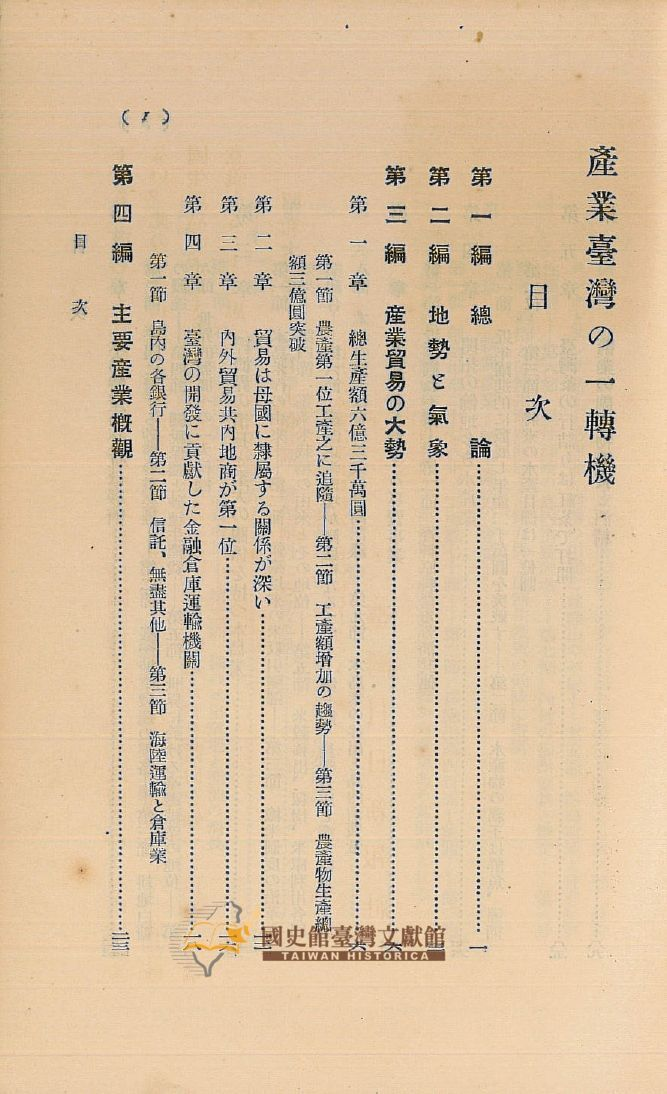 產業臺灣の一轉機
目次
第一編 總論………一
第二編 地勢と氣象………
第三編 產業貿易の大勢………六
第一章 總生產額六億三千萬圓………六
第一節 農產第一位工產之に追隨――第二節 工產額增加の趨勢――第三節 農產物生產總
額三億圓突破
第二章 貿易は母國に隷屬する關係が深い………
第三章 內外貿易共內地商が第一位………
第四章 臺灣の開發に貢獻した金融倉庫運輸機關………
第一節 島內の各銀行――第二節 信託、無盡其他――第三節 海陸運輸と倉庫業
第四編 主要產業概觀………二三
目次
國史館臺灣文獻館
TAIWAN HISTORICA